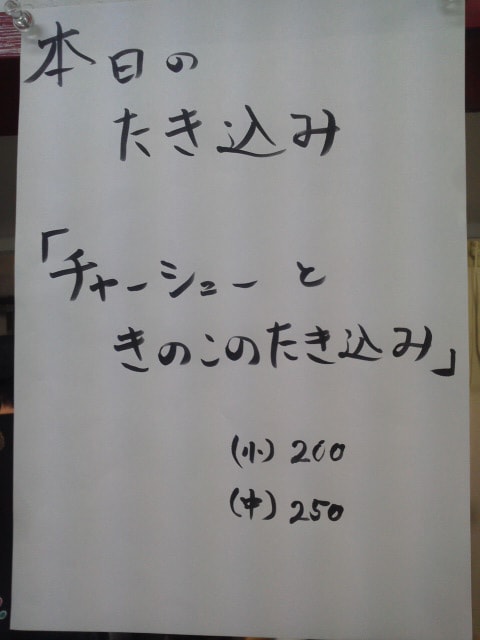 本日の
たき込み
「チャーシューと
きのこのたき込み」
(小) 200
(中) 250